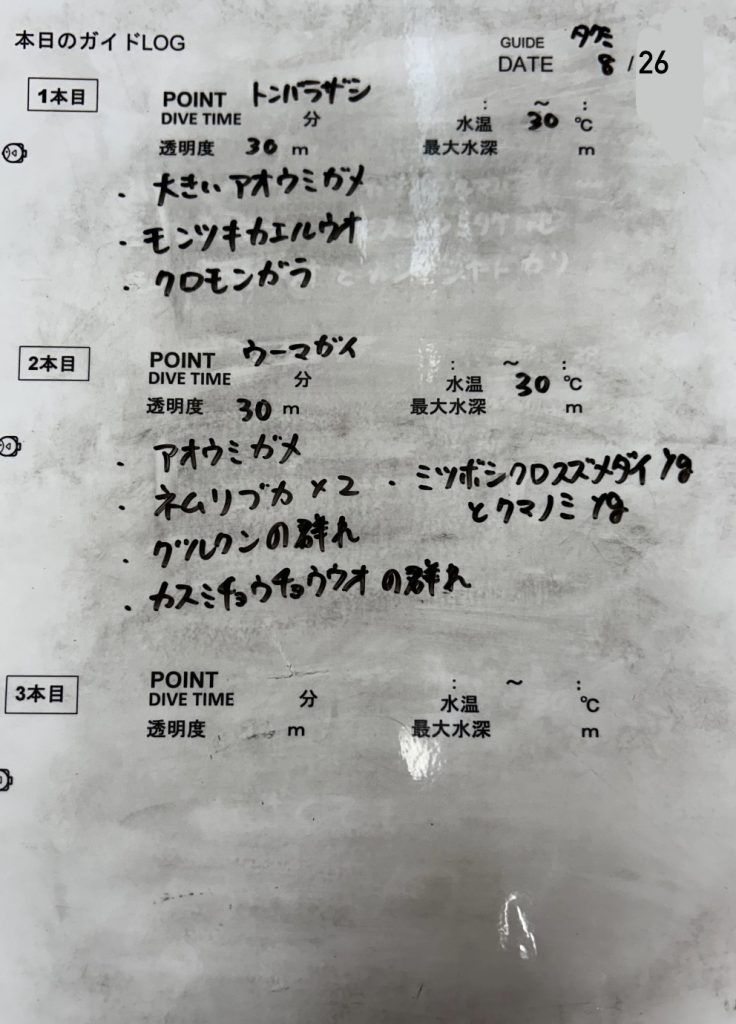 本日のガイドLOG
GUIDE タクミ
DATE 8/26
1本目
POINT トンバラザシ
DIVE TIME 分 : ～ :
水温 30 ℃
透明度 30 m 最大水深 m
・大きいアオウミガメ
・モンツキカエルウオ
・クロモンガラ
2本目
POINT ウーマガイ
DIVE TIME 分 : ～ :
水温 30 ℃
透明度 30 m 最大水深 m
・アオウミガメ
・ネムリブカ×2
・ミツボシクロスズメダイyg
とクマノミyg
・グルクンの群れ
・カスミチョウチョウウオの群れ
3本目
POINT : ～ :
DIVE TIME 分 水温 ℃
透明度 m 最大水深 m